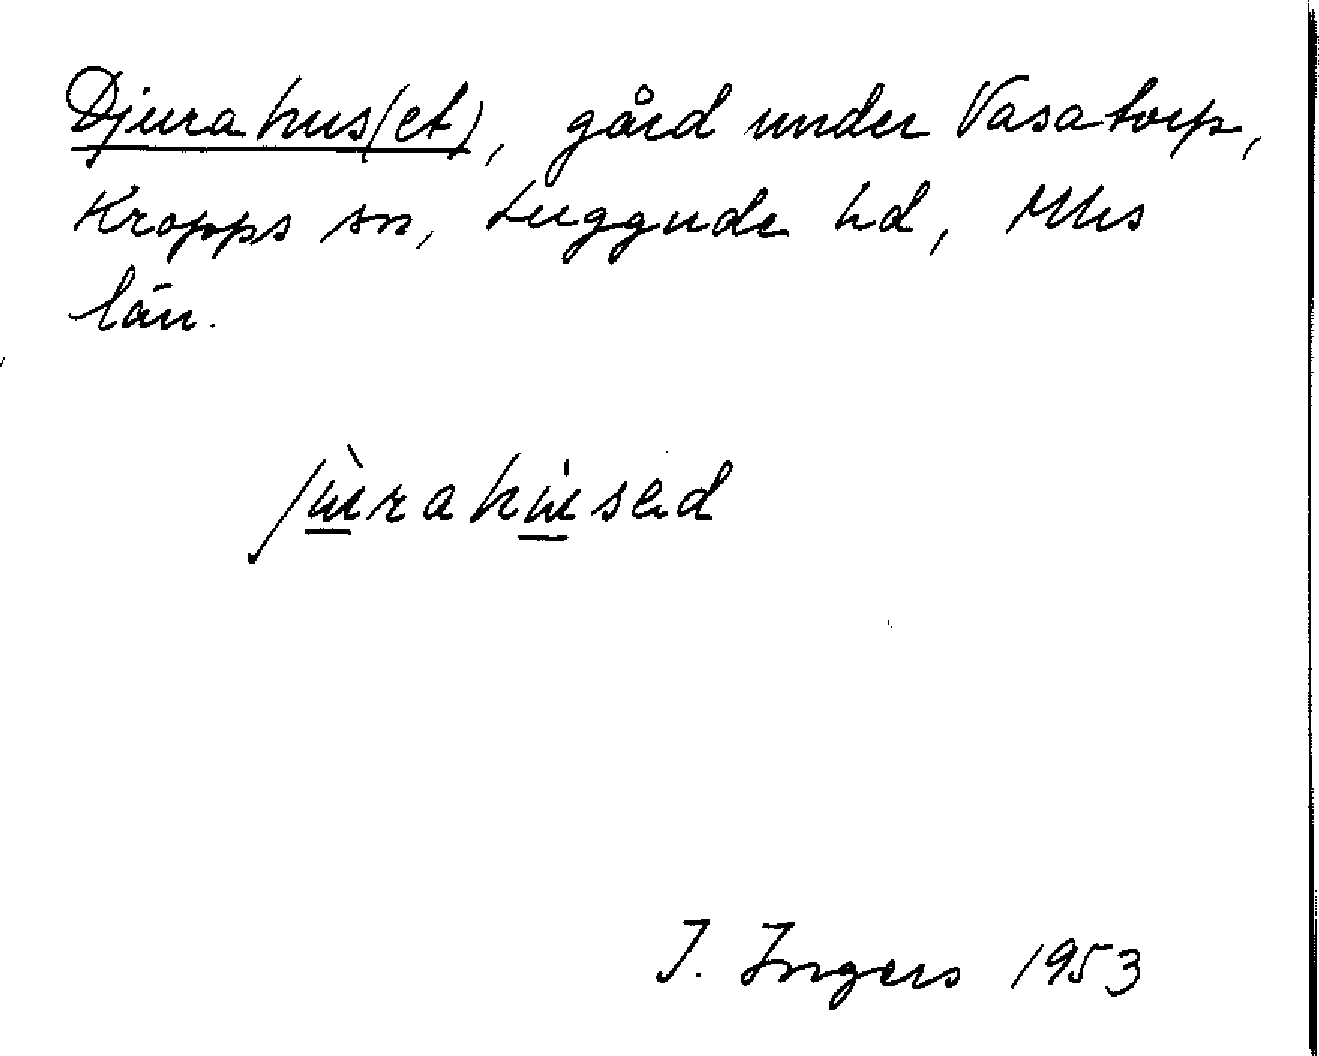 Djurahus(et), gård under Vasatorp,
Kropps sn, Luggude hd, Mhs
län.
jùrahu̍sed
I. Ingers 1953